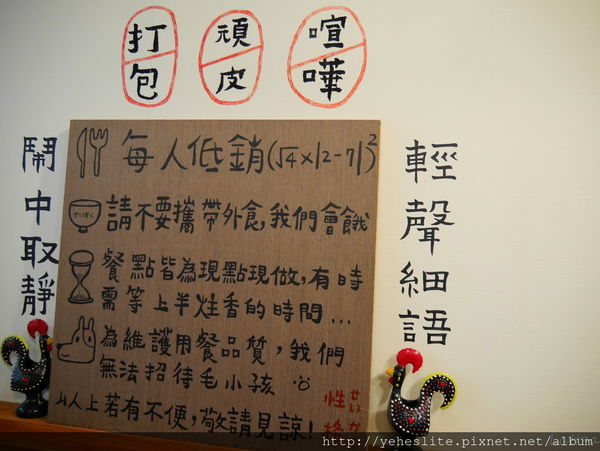 打包
頑皮
喧嘩
鬧中取靜
每人低銷(√4×|2-7|)²
請不要攜帶外食,我們會餓
餐點皆為現點現做,有時
需等上半炷香的時間...
為維護用餐品質,我們
無法招待毛小孩
以上若有不便,敬請見諒!
性格
せいか
輕聲細語
http://yeheslite.pixnet.net/album